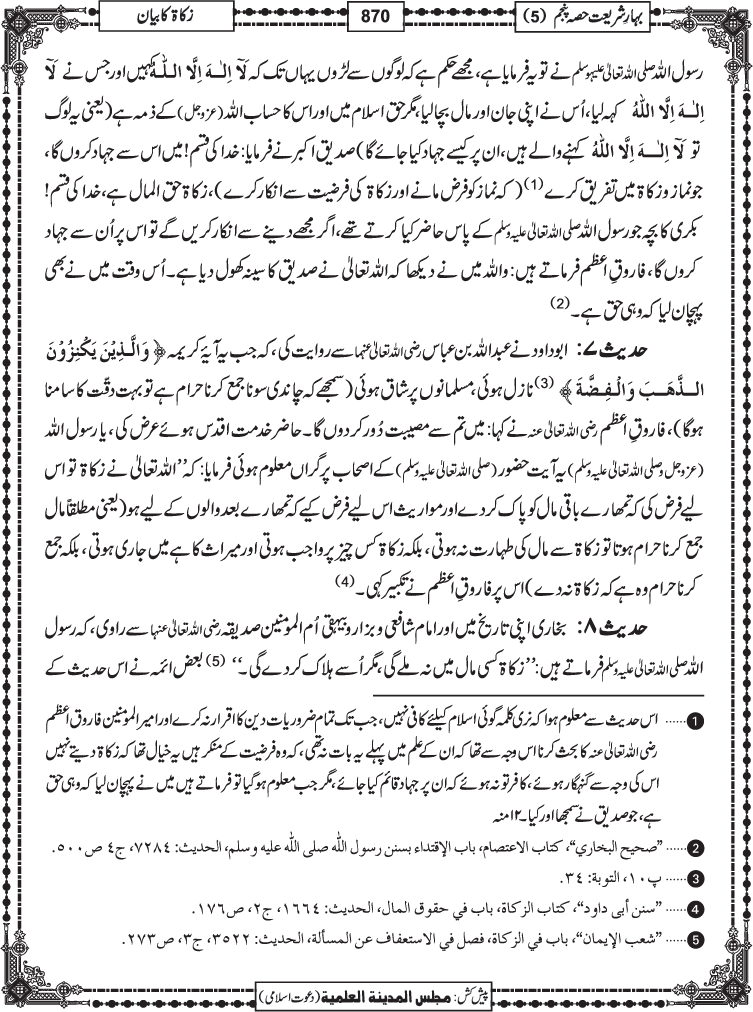 بہارِ شریعت حصہ پنجم (5)
870
زکاۃ کا بیان
رسول اﷲ صلی اللہ تعالیٰ علیہ وسلم نے تو یہ فرمایا ہے، مجھے حکم ہے کہ لوگوں سے لڑوں یہاں تک کہ لَآ اِلٰـہَ اِلَّا اللّٰہُ کہیں اور جس نے لَآ
اِلٰـہَ اِلَّا اللّٰہُ کہہ لیا، اُس نے اپنی جان اور مال بچا لیا، مگر حق اسلام میں اور اس کا حساب اﷲ (عزوجل) کے ذمہ ہے (یعنی یہ لوگ
تو لَآ اِلٰـہَ اِلَّا اللّٰہُ کہنے والے ہیں، ان پر کیسے جہاد کیا جائے گا) صدیق اکبر نے فرمایا: خدا کی قسم! میں اس سے جہاد کروں گا،
جو نماز و زکاۃ میں تفریق کرے (1) (کہ نماز کو فرض مانے اور زکاۃ کی فرضیت سے انکار کرے)، زکاۃ حق المال ہے، خدا کی قسم!
بکری کا بچہ جو رسول اﷲ صلی اللہ تعالیٰ علیہ وسلم کے پاس حاضر کیا کرتے تھے، اگر مجھے دینے سے انکار کریں گے تو اس پر اُن سے جہاد
کروں گا، فاروقِ اعظم فرماتے ہیں: واﷲ میں نے دیکھا کہ اﷲ تعالیٰ نے صدیق کا سینہ کھول دیا ہے۔ اُس وقت میں نے بھی
پہچان لیا کہ وہی حق ہے۔ (2)
حدیث ۷: ابو داود نے عبداﷲ بن عباس رضی اللہ تعالیٰ عنہما سے روایت کی، کہ جب یہ آیۂ کریمہ ﴿ وَالَّـذِیْنَ یَکْنِزُوْنَ
الـذَّھَـبَ وَالْـفِضَّۃَ ﴾ (3) نازل ہوئی، مسلمانوں پر شاق ہوئی (سمجھے کہ چاندی سونا جمع کرنا حرام ہے تو بہت دقّت کا سامنا
ہوگا)، فاروقِ اعظم رضی اللہ تعالیٰ عنہ نے کہا: میں تم سے مصیبت دُور کر دوں گا۔ حاضر خدمت اقدس ہوئے عرض کی، یا رسول اﷲ
(عزوجل وصلی اللہ تعالیٰ علیہ وسلم) یہ آیت حضور (صلی اللہ تعالیٰ علیہ وسلم) کے اصحاب پر گراں معلوم ہوئی فرمایا: کہ ’’اﷲ تعالیٰ نے زکاۃ تو اس
لیے فرض کی کہ تمھارے باقی مال کو پاک کردے اور مواریث اس لیے فرض کیے کہ تمھارے بعد والوں کے لیے ہو (یعنی مطلقاً مال
جمع کرنا حرام ہوتا تو زکاۃ سے مال کی طہارت نہ ہوتی، بلکہ زکاۃ کس چیز پر واجب ہوتی اور میراث کا ہے میں جاری ہوتی، بلکہ جمع
کرنا حرام وہ ہے کہ زکاۃ نہ دے) اس پر فاروقِ اعظم نے تکبیر کہی۔ (4)
حدیث ۸: بخاری اپنی تاریخ میں اور امام شافعی و بزار و بیہقی اُم المومنین صدیقہ رضی اللہ تعالیٰ عنہا سے راوی، کہ رسول
اﷲ صلی اللہ تعالیٰ علیہ وسلم فرماتے ہیں: ’’زکاۃ کسی مال میں نہ ملے گی، مگر اُسے ہلاک کر دے گی۔‘‘ (5) بعض ائمہ نے اس حدیث کے
1 ...... اس حدیث سے معلوم ہوا کہ نری کلمہ گوئی اسلام کیلئے کافی نہیں، جب تک تمام ضروریات دین کا اقرار نہ کرے اور امیر المومنین فاروق اعظم
رضی اللہ تعالیٰ عنہ کا بحث کرنا اس وجہ سے تھا کہ ان کے علم میں پہلے یہ بات نہ تھی، کہ وہ فرضیت کے منکر ہیں یہ خیال تھا کہ زکاۃ دیتے نہیں
اس کی وجہ سے گنہگار ہوئے، کافر تو نہ ہوئے کہ ان پر جہاد قائم کیا جائے، مگر جب معلوم ہوگیا تو فرماتے ہیں میں نے پہچان لیا کہ وہی حق
ہے، جو صدیق نے سمجھا اور کیا۔ ۱۲ منہ
2 ...... ’’صحیح البخاري‘‘، کتاب الاعتصام، باب الإقتداء بسنن رسول اللّٰہ صلی اللّٰہ علیہ وسلم، الحدیث: ۷۲۸٤، ج٤ ص٥۰۰.
3 ...... پ۱۰، التوبۃ: ۳٤.
4 ...... ’’سنن أبی داود‘‘، کتاب الزکاۃ، باب في حقوق المال، الحدیث: ۱٦٦٤، ج۲، ص۱۷٦.
5 ...... ’’شعب الإیمان‘‘، باب في الزکاۃ، فصل في الاستعفاف عن المسألۃ، الحدیث: ۳٥۲۲، ج۳، ص۲۷۳.
پیش کش: مجلس المدینة العلمیة (دعوت اسلامی)